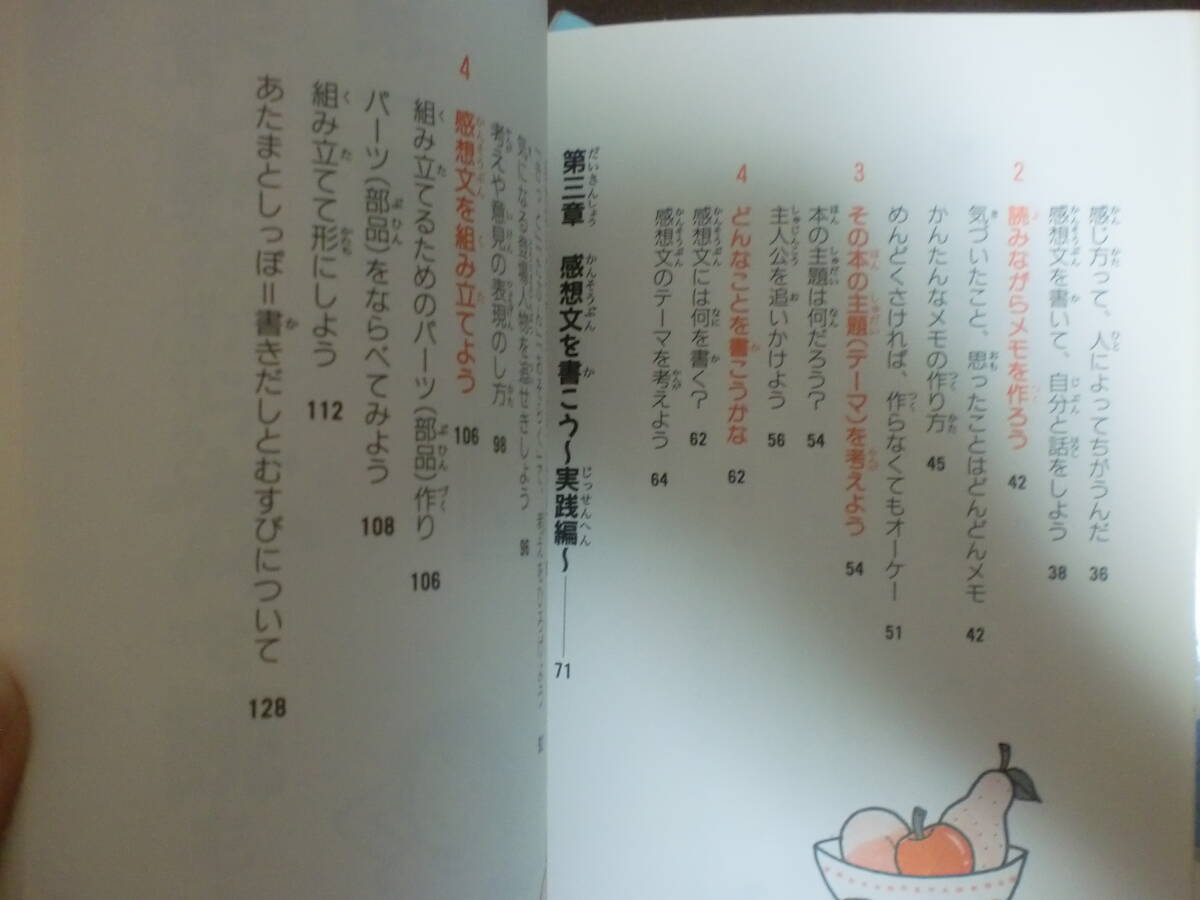 感じ方って、人によってちがうんだ 36
感想文を書いて、自分と話をしよう 38
2 読みながらメモを作ろう 42
気づいたこと、思ったことはどんどんメモ 42
かんたんなメモの作り方 45
めんどくさければ、作らなくてもオーケー 51
3 その本の主題(テーマ)を考えよう 54
本の主題は何だろう? 54
主人公を追いかけよう 56
4 どんなことを書こうかな 62
感想文には何を書く? 62
感想文のテーマを考えよう 64
第三章 感想文を書こう〜実践編〜 71
気になる登場人物を
考えや意見の表現のし方 98
4 感想文を組み立てよう 106
組み立てるためのパーツ(部品)作り 106
パーツ(部品)をならべてみよう 108
組み立てて形にしよう 112
あたまとしっぽ=書きだしとむすびについて 128